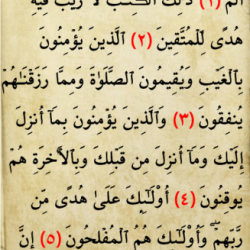 الم (١) ذَٰلِكَ الْكِتَٰبُ لَا رَيْبَ فِيهِ
هُدًى لِّلْمُتَّقِينَ (٢) الَّذِينَ يُؤْمِنُونَ
بِالْغَيْبِ وَيُقِيمُونَ الصَّلَوٰةَ وَمِمَّا رَزَقْنَٰهُمْ
يُنفِقُونَ (٣) وَالَّذِينَ يُؤْمِنُونَ بِمَآ أُنزِلَ
إِلَيْكَ وَمَآ أُنزِلَ مِن قَبْلِكَ وَبِالْأَخِرَةِ هُمْ
يُوقِنُونَ (٤) أُوْلَٰٓئِكَ عَلَىٰ هُدًى مِّن
رَّبِّهِمْ ۖ وَأُوْلَٰٓئِكَ هُمُ الْمُفْلِحُونَ (٥) إِنَّ